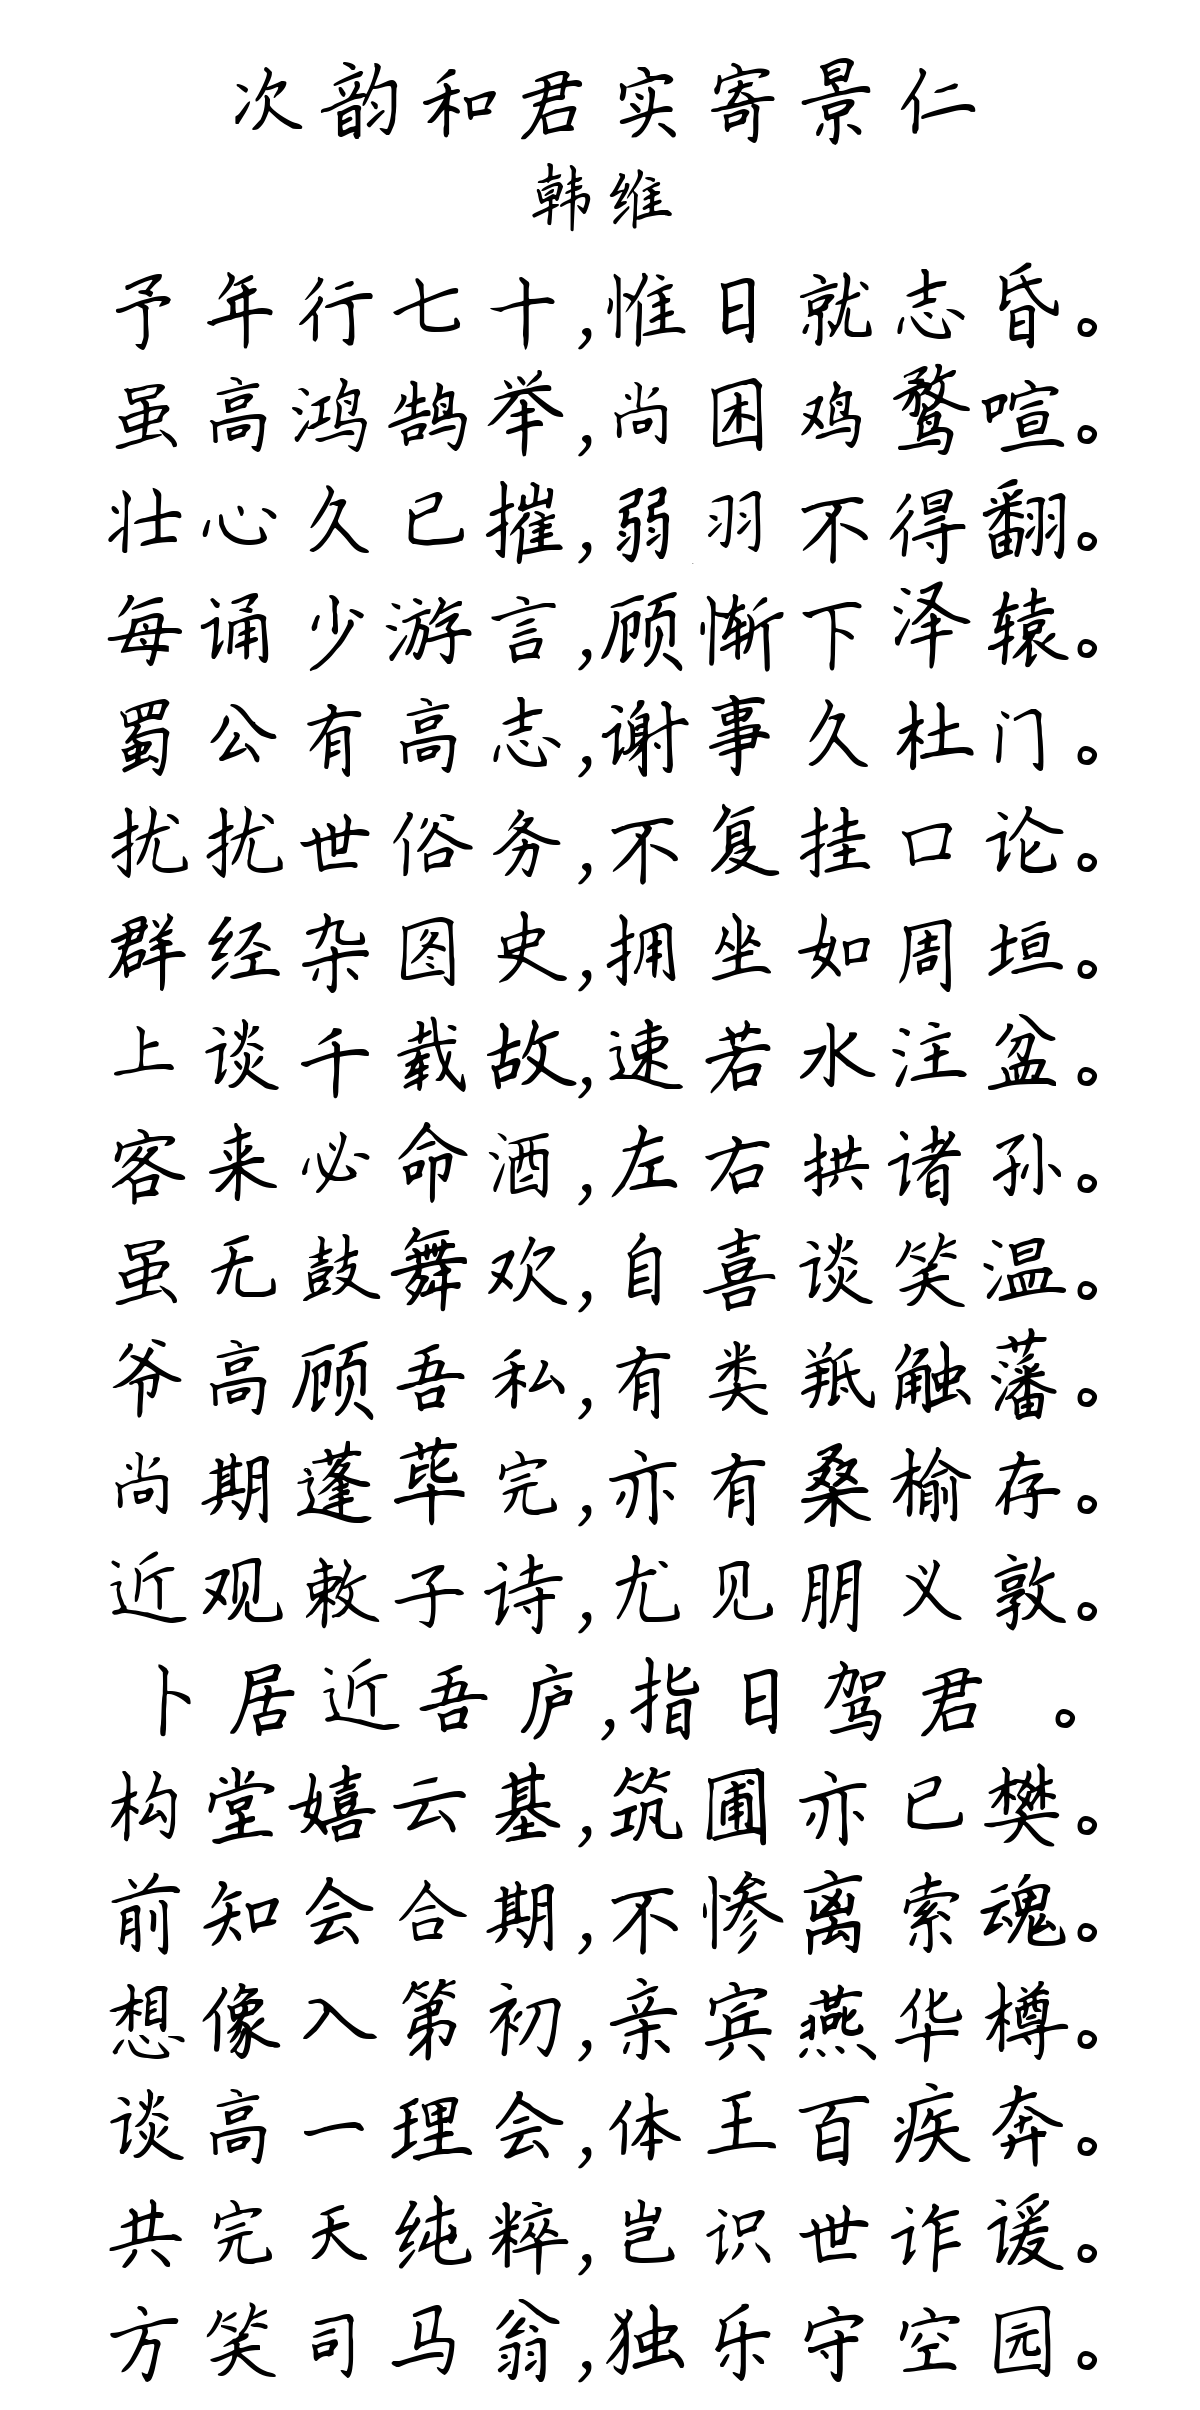 次韵和君实寄景仁
韩维
予年行七十,惟日就志昏。
虽高鸿鹄举,尚困鸡鹜喧。
壮心久已摧,弱羽不得翻。
每诵少游言,顾惭下泽辕。
蜀公有高志,谢事久杜门。
扰扰世俗务,不复挂口论。
群经杂图史,拥坐如周垣。
上谈千载故,速若水注盆。
客来必命酒,左右拱诸孙。
虽无鼓舞欢,自喜谈笑温。
爷高顾吾私,有类羝触藩。
尚期蓬荜完,亦有桑榆存。
近观敕子诗,尤见朋义敦。
卜居近吾庐,指日驾君 。
构堂嬉云基,筑圃亦已樊。
前知会合期,不惨离索魂。
想像入第初,亲宾燕华樽。
谈高一理会,体王百疾奔。
共完天纯粹,岂识世诈谖。
方笑司马翁,独乐守空园。